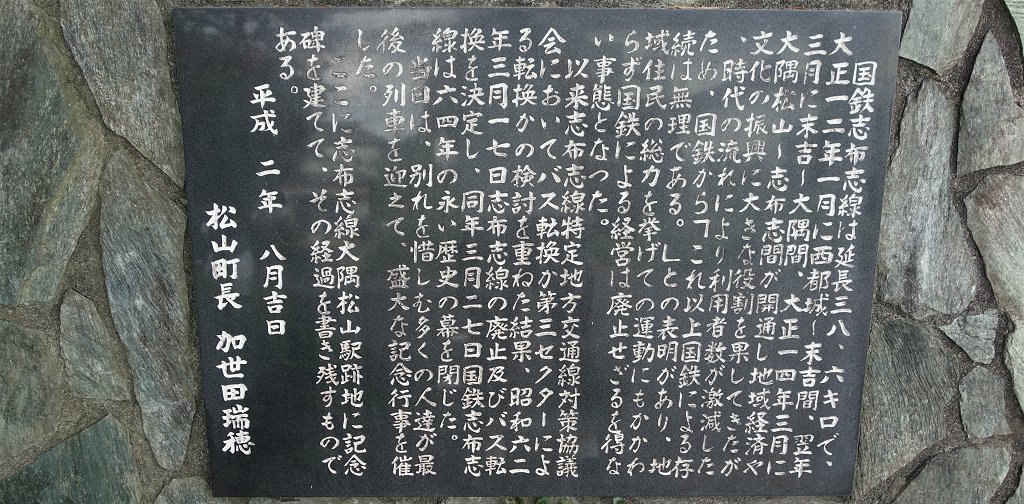 国鉄志布志線は延長三八、六キロで、
大正一二年一月に西都城〜末吉間、翌年
三月に末吉〜大隅間、大正一四年三月に
大隅松山〜志布志間が開通し地域経済や
文化の振興に大きな役割を果してきたが
、時代の流れにより利用者数が激減した
ため、国鉄から「これ以上国鉄による存
続は無理である。」との表明があり、地
域住民の総力を挙げての運動にもかかわ
らず国鉄による経営は廃止せざるを得な
い事態となった。
以来志布志線特定地方交通線対策協議
会においてバス転換か第三セクターによ
る転換かの検討を重ねた結果、昭和六二
年三月一七日志布志線の廃止及びバス転
換を決定し、同年三月二七日国鉄志布志
線は六四年の永い歴史の幕を閉じた。
当日は、別れを惜しむ多くの人達が最
後の列車を迎えて、盛大な記念行事を催
した。
ここに志布志線大隅松山駅跡地に記念
碑を建てて、その経過を書き残すもので
ある。
平成 二年 八月吉日
松山町長 加世田瑞穂